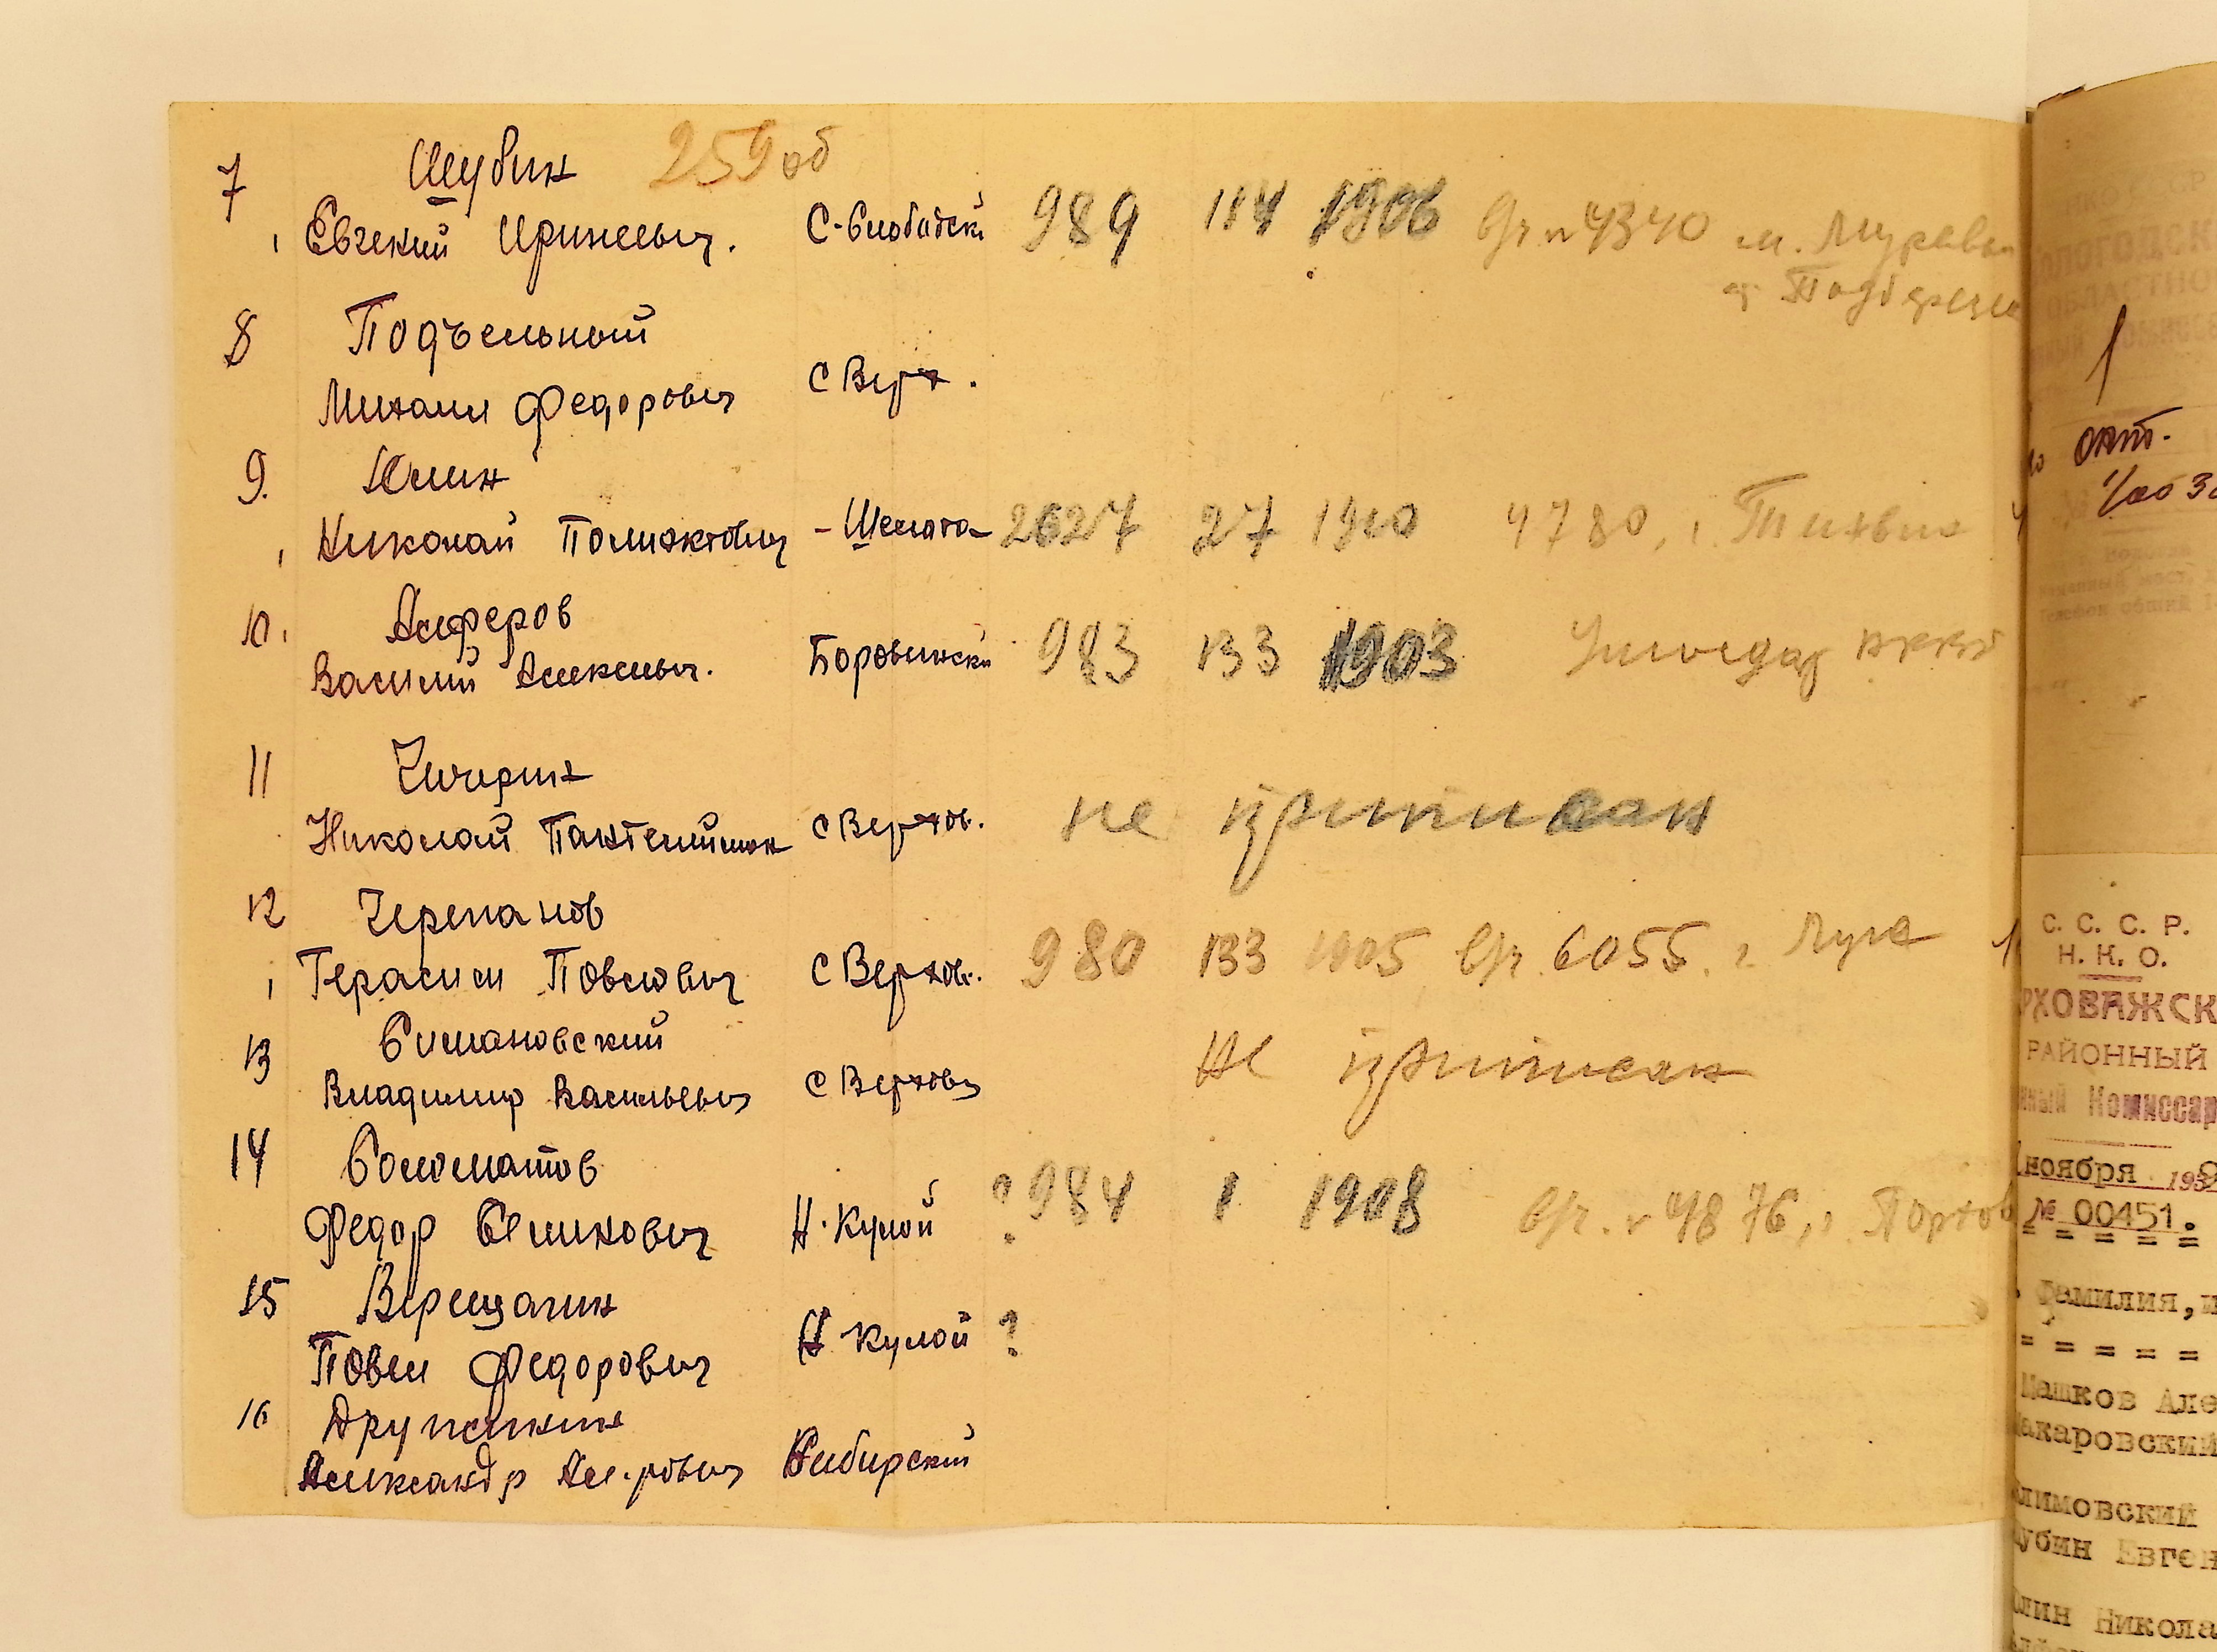 259 об
7 Шубин
Евгений Иринеевич. С-Слободск. 989 114 1906 в/ч № 4340 м. Муравьи
ст. Подберезье
8 Подъельный
Михаил Федорович С Верх.
9. Юлин
Николай Полиэктович - Шелота 2627 27 1910 4780, г. Тихвин
10. Алферов
Василий Алексеевич. Боровинский 983 133 1903 РККА
11 Чичерин
Николай Пантелеймон С Верхов. не приписан
12 Черепанов
Герасим Павлович С Верхов. 980 133 1905 в/ч 6055. г Луга
13 Симановский
Владимир Васильевич С Верховс не приписан
14 Соломатов
Федор Семенович Н-Кулой ? 984 1 1908 в/ч. № 4876, г. Порхов
15 Верещагин
Павел Федорович Н Кулой ?
16 Дружинин
Александр Сибирский
окт.
С. С. С. Р.
Н. К. О.
РХОВАЖСК
РАЙОННЫЙ
нный Комиссар
ноября 193
№ 00451.
Фамилия, и
Машков Але
Макаровский
лимовский
убин Евген
лин Никола